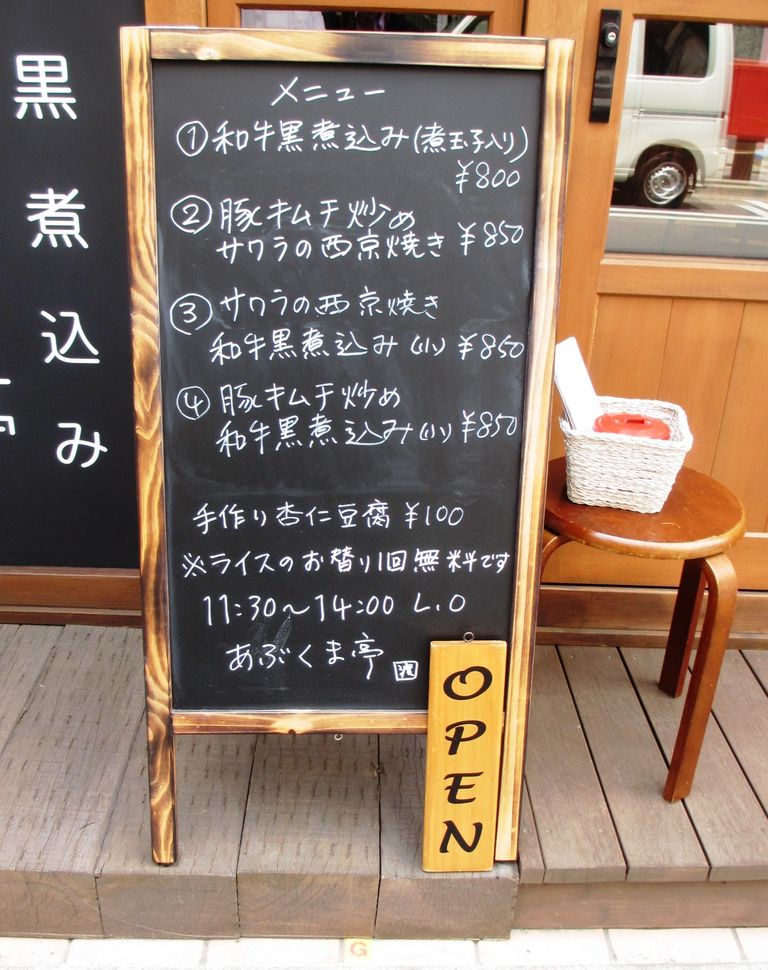 黒煮込み
メニュー
①和牛黒煮込み(煮玉子入り)
¥800
②豚キムチ炒め
サワラの西京焼き ¥850
③サワラの西京焼き
和牛黒煮込み(小) ¥850
④豚キムチ炒め
和牛黒煮込み(小) ¥850
手作り杏仁豆腐 ¥100
※ライスのお替り1回無料です
11:30〜14:00 L.O
あぶくま亭
OPEN
G